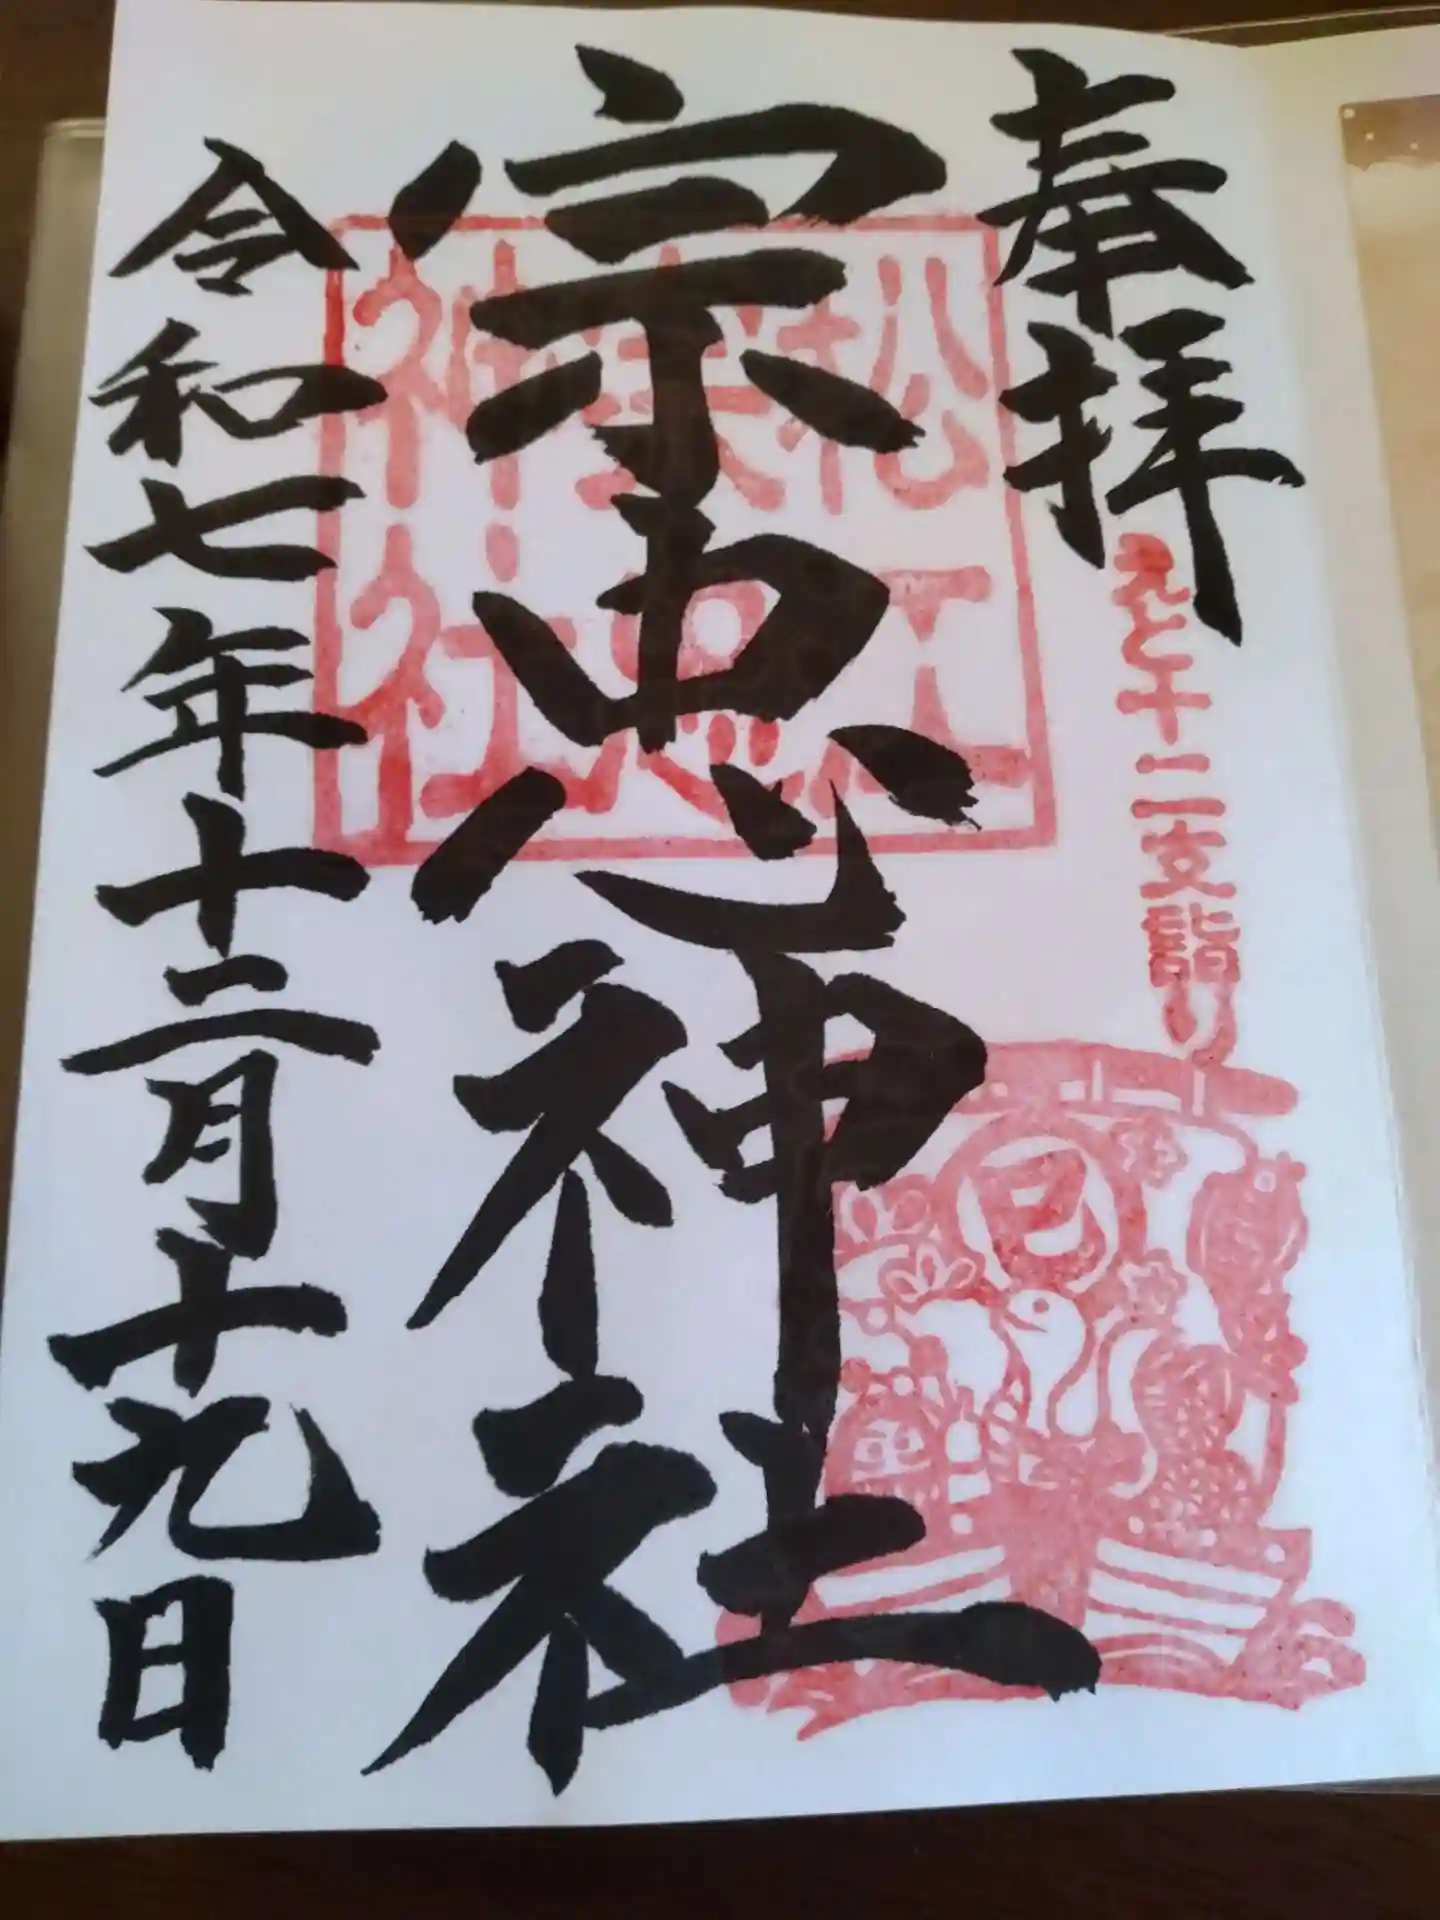 奉拝
えと十二支詣り
巳
松江
宗忠
神社
宗忠神社
令和七年十二月十九日